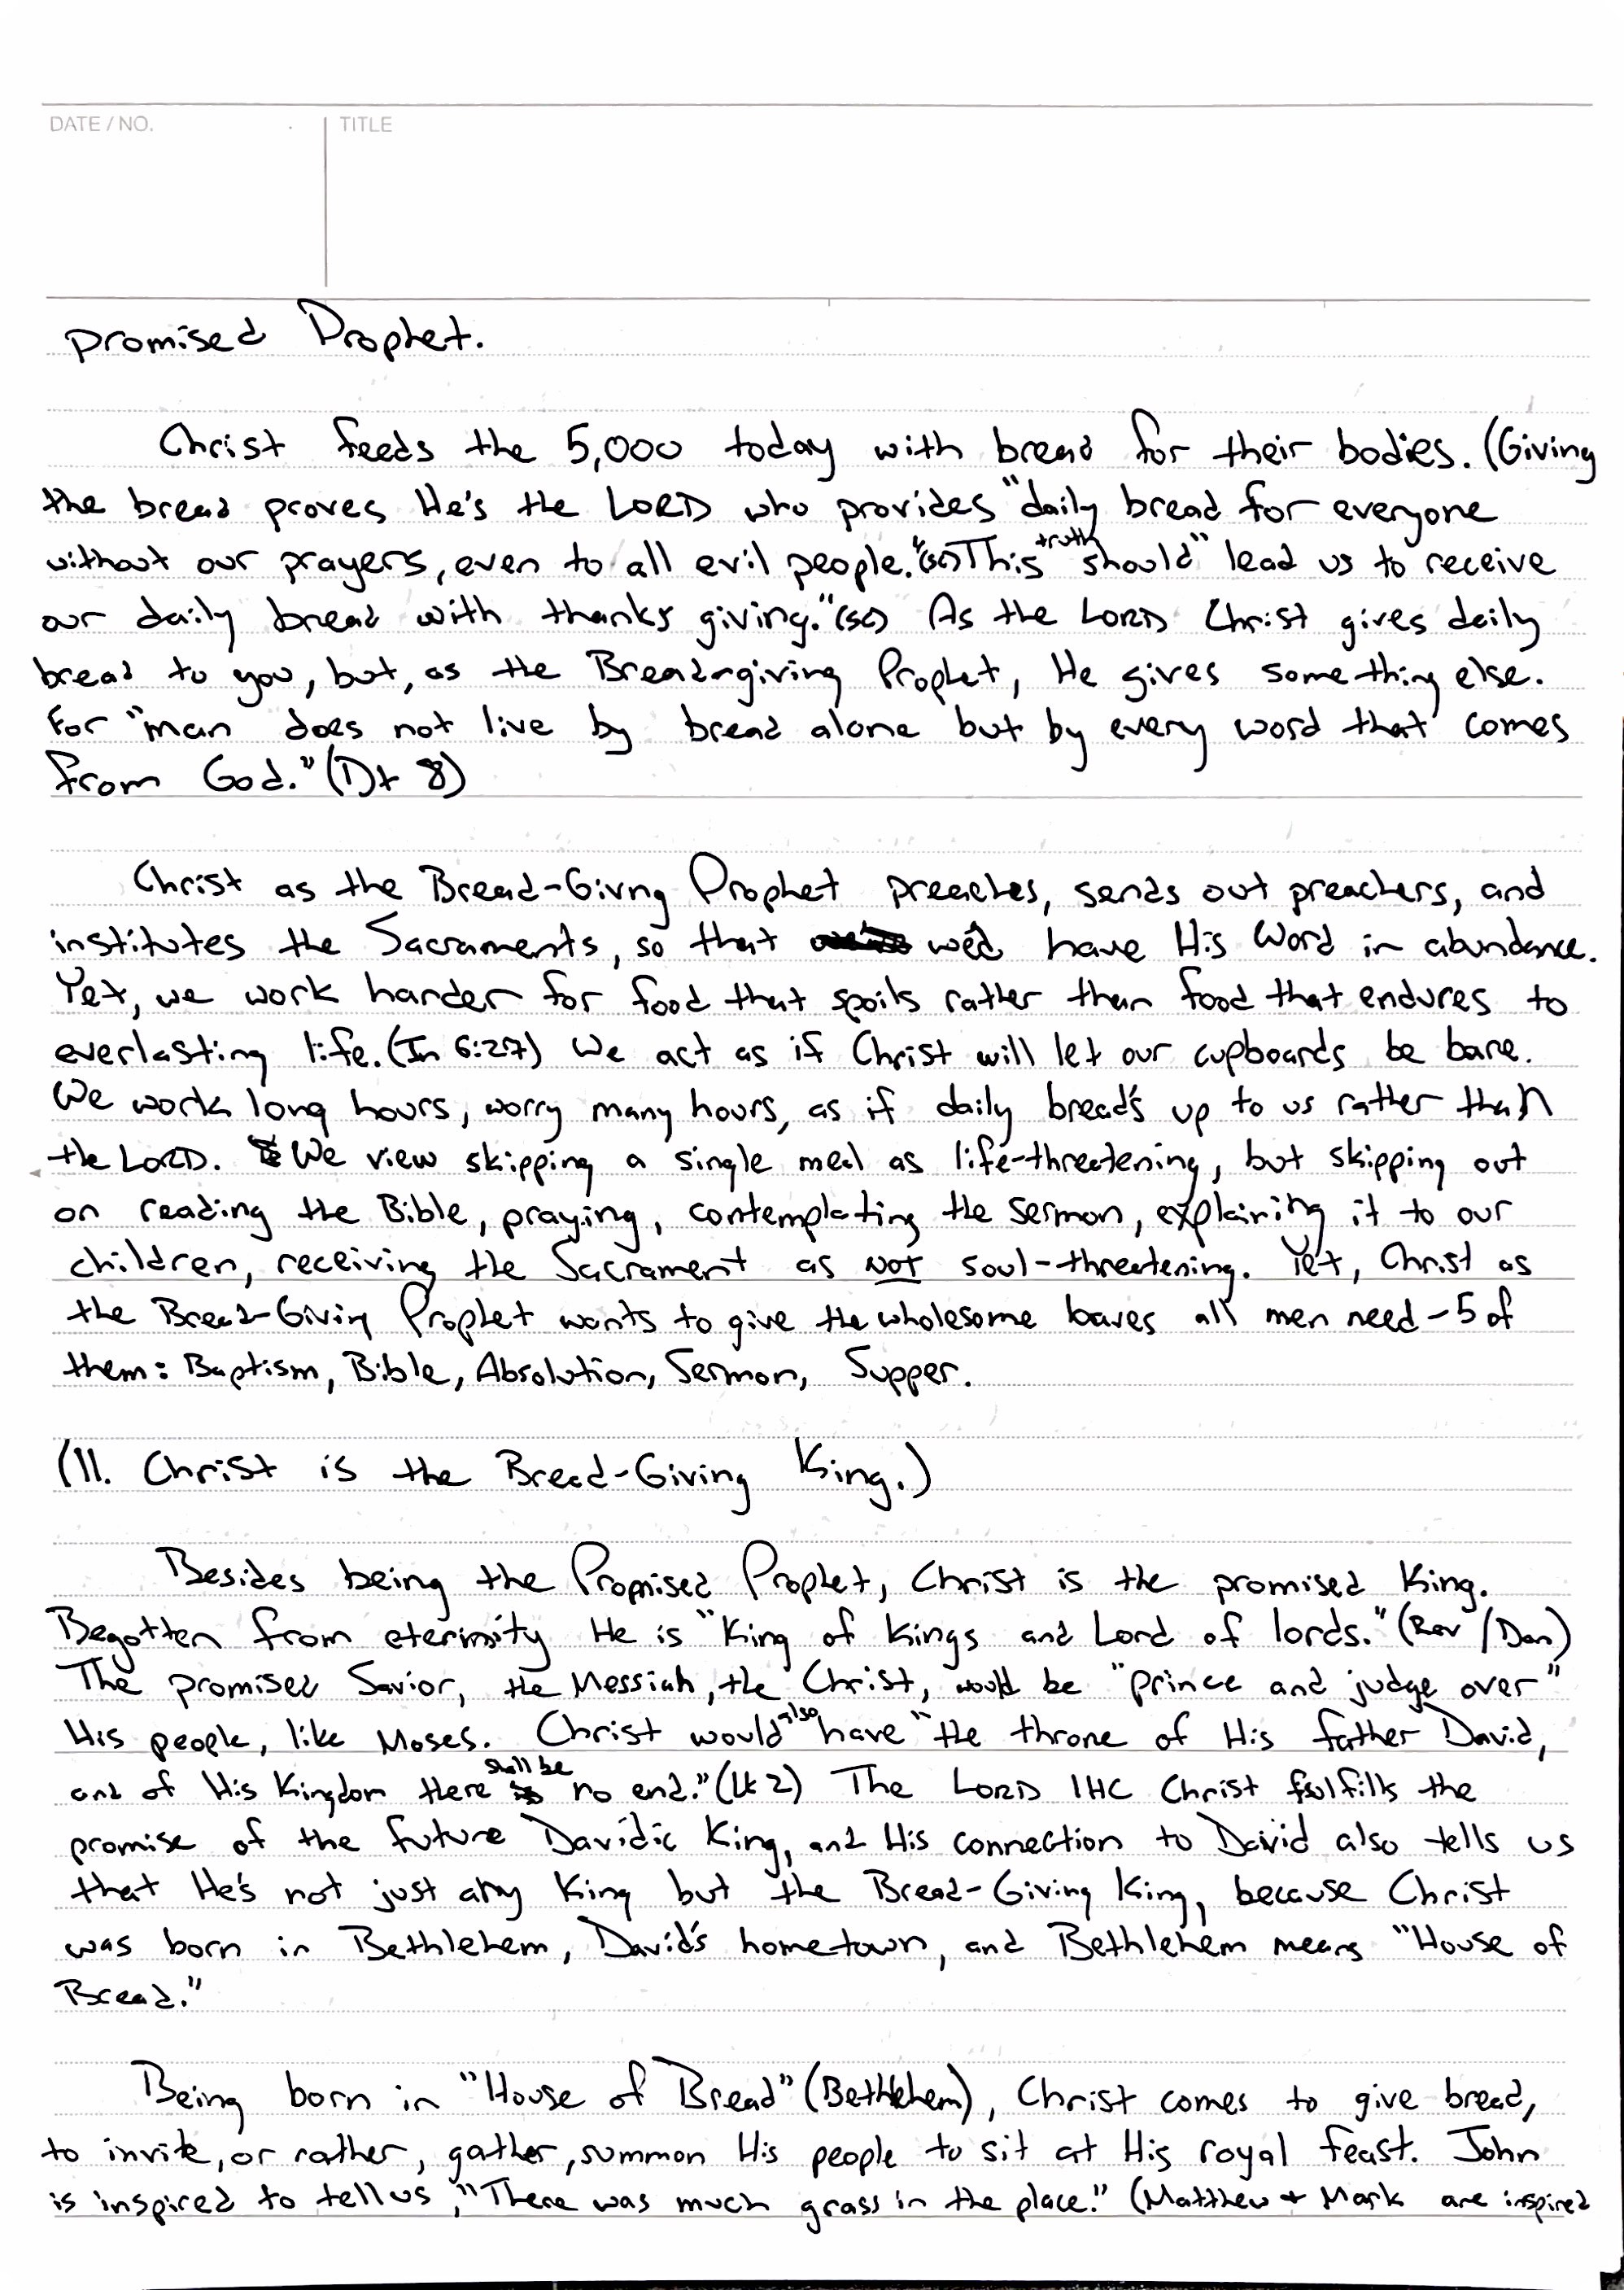 DATE / NO.
TITLE
promised Prophet.
Christ feeds the 5,000 today with bread for their bodies. (Giving
the bread proves He's the LORD who provides "daily bread for everyone
without our prayers, even to all evil people."(SC) This truth should "lead us to receive
our daily bread with thanks giving."(SC) As the LORD Christ gives daily
bread to you, but, as the Bread-giving Prophet, He gives something else.
For "man does not live by bread alone but by every word that comes
from God."(Dt 8)
Christ as the Bread-Givng Prophet preaches, sends out preachers, and
institutes the Sacraments, so that we'd have His Word in abundance.
Yet, we work harder for food that spoils rather than food that endures to
everlasting life.(Jn 6:27) We act as if Christ will let our cupboards be bare.
We work long hours, worry many hours, as if daily bread's up to us rather than
the LORD. We view skipping a single meal as life-threatening, but skipping out
on reading the Bible, praying, contemplating the sermon, explaining it to our
children, receiving the Sacrament as NOT soul-threatening. Yet, Christ as
the Bread-Giving Prophet wants to give the wholesome loaves all men need - 5 of
them: Baptism, Bible, Absolution, Sermon, Supper.
(II. Christ is the Bread-Giving King.)
Besides being the Promised Prophet, Christ is the promised King.
Begotten from eternity He is "King of Kings and Lord of lords." (Rev / Dan)
The promised Savior, the Messiah, the Christ, would be "prince and judge over"
His people, like Moses. Christ would also have "the throne of His father David,
and of His Kingdom there shall be no end."(Lk 2) The LORD IHC Christ fulfills the
promise of the future Davidic King, and His connection to David also tells us
that He's not just any King but the Bread-Giving King, because Christ
was born in Bethlehem, David's hometown, and Bethlehem means "House of
Bread."
Being born in "House of Bread" (Bethlehem), Christ comes to give bread,
to invite, or rather, gather, summon His people to sit at His royal feast. John
is inspired to tell us, "There was much grass in the place." (Matthew + Mark are inspired